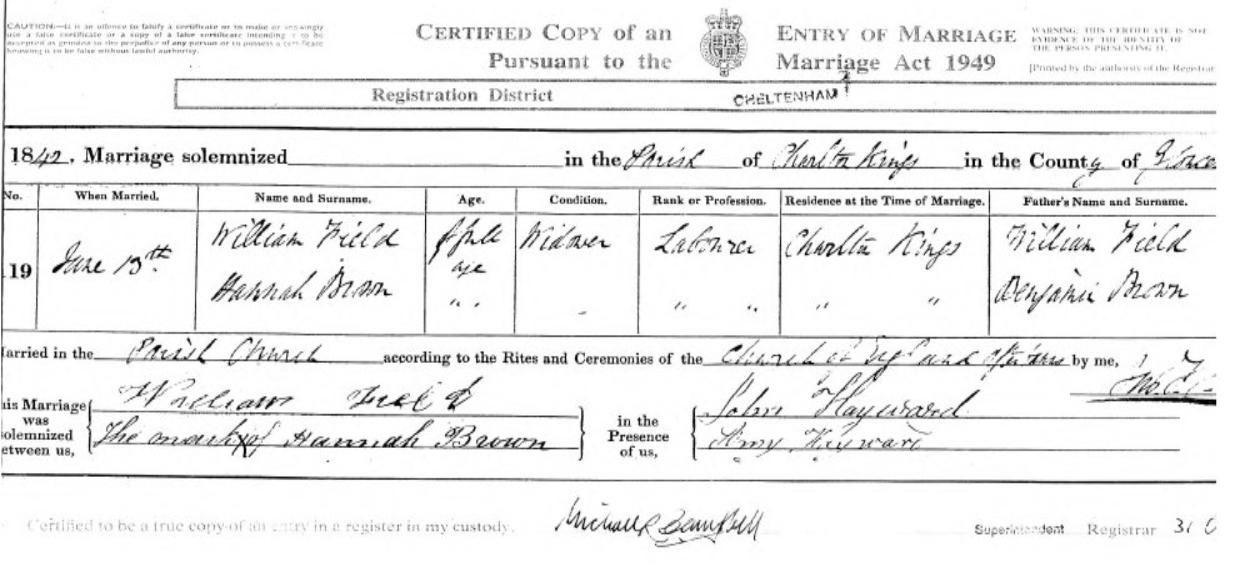 CAUTION:—It is an offence to falsify a certificate or to make or knowingly
use a false certificate or a copy of a false certificate intending it to be
accepted as genuine to the prejudice of any person or to possess a certificate
knowing it to be false without lawful authority.
CERTIFIED COPY OF AN ENTRY OF MARRIAGE
Pursuant to the Marriage Act 1949
WARNING: THIS CERTIFICATE IS NOT
EVIDENCE OF THE IDENTITY OF
THE PERSON PRESENTING IT.
[Printed by the authority of the Registrar
Registration District CHELTENHAM
1842. Marriage solemnized in the Parish of Charlton Kings in the County of Glouce
No. When Married. Name and Surname. Age. Condition. Rank or Profession. Residence at the Time of Marriage. Father's Name and Surname.
William Field of full Widower Labourer Charlton Kings William Field
19 June 13th age
Hannah Brown " " - " " " " Benjamin Brown
arried in the Parish Church according to the Rites and Ceremonies of the Church of England by me,
his Marriage William Field in the John Hayward
was
solemnized The mark X of Hannah Brown Presence Amy Hayward
etween us, of us,
Certified to be a true copy of an entry in a register in my custody. Superintendent Registrar 31